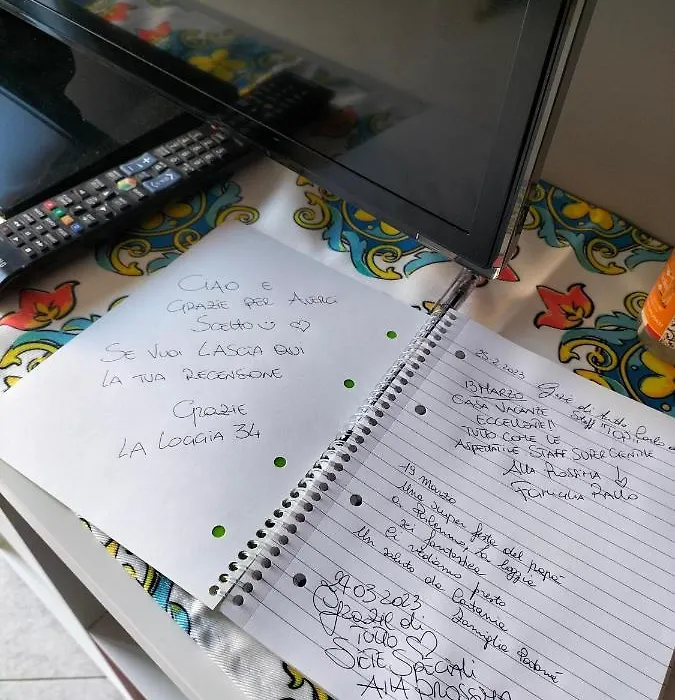 CIAO E
GRAZIE PER AVERCI
SCELTO
SE VUOI LASCIA QUI
LA TUA RECENSIONE
GRAZIE
LA LOGGIA 34
25.2.2023 Grazie di tutto
Staff TICO, Paolo
13 MARZO
CASA VACANTE
ECCELLENTE!!
TUTTO COME LE
ASPETTATIVE STAFF SUPER GENTILE
ALLA PROSSIMA
FAMIGLIA RALLO
19 marzo
Una super festa del papà
a Palermo, la loggia
è fantastica
Ci vediamo presto
Un saluto da Catania
Famiglia
27.03.2023
Grazie di
TUTTO
SIETE SPECIALI
ALLA PROSSIMA